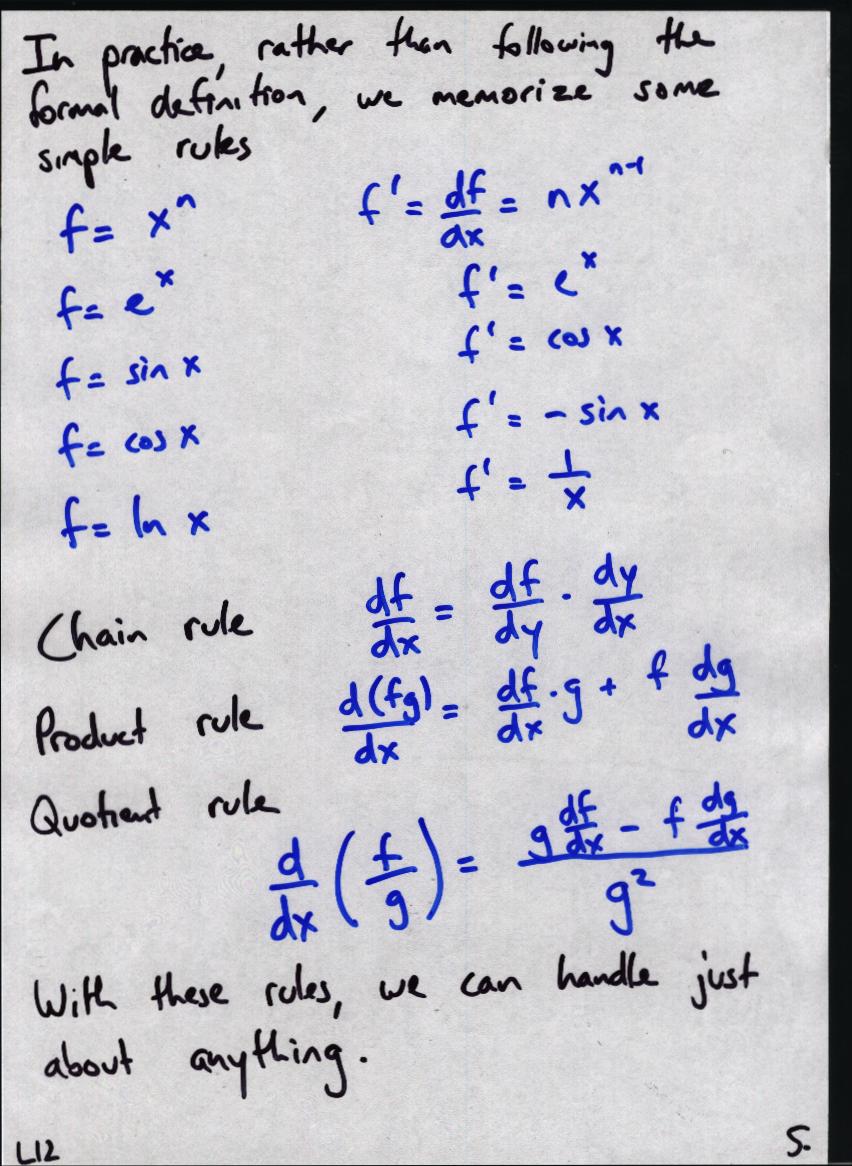 In practice, rather than following the
formal definition, we memorize some
simple rules
f = xⁿ f' = df/dx = nxⁿ⁻¹
f = eˣ f' = eˣ
f = sin x f' = cos x
f = cos x f' = - sin x
f = ln x f' = 1/x
Chain rule df/dx = df/dy · dy/dx
Product rule d(fg)/dx = df/dx · g + f dg/dx
Quotient rule
d/dx (f/g) = (g df/dx - f dg/dx)/g²
With these rules, we can handle just
about anything.
L12 5.